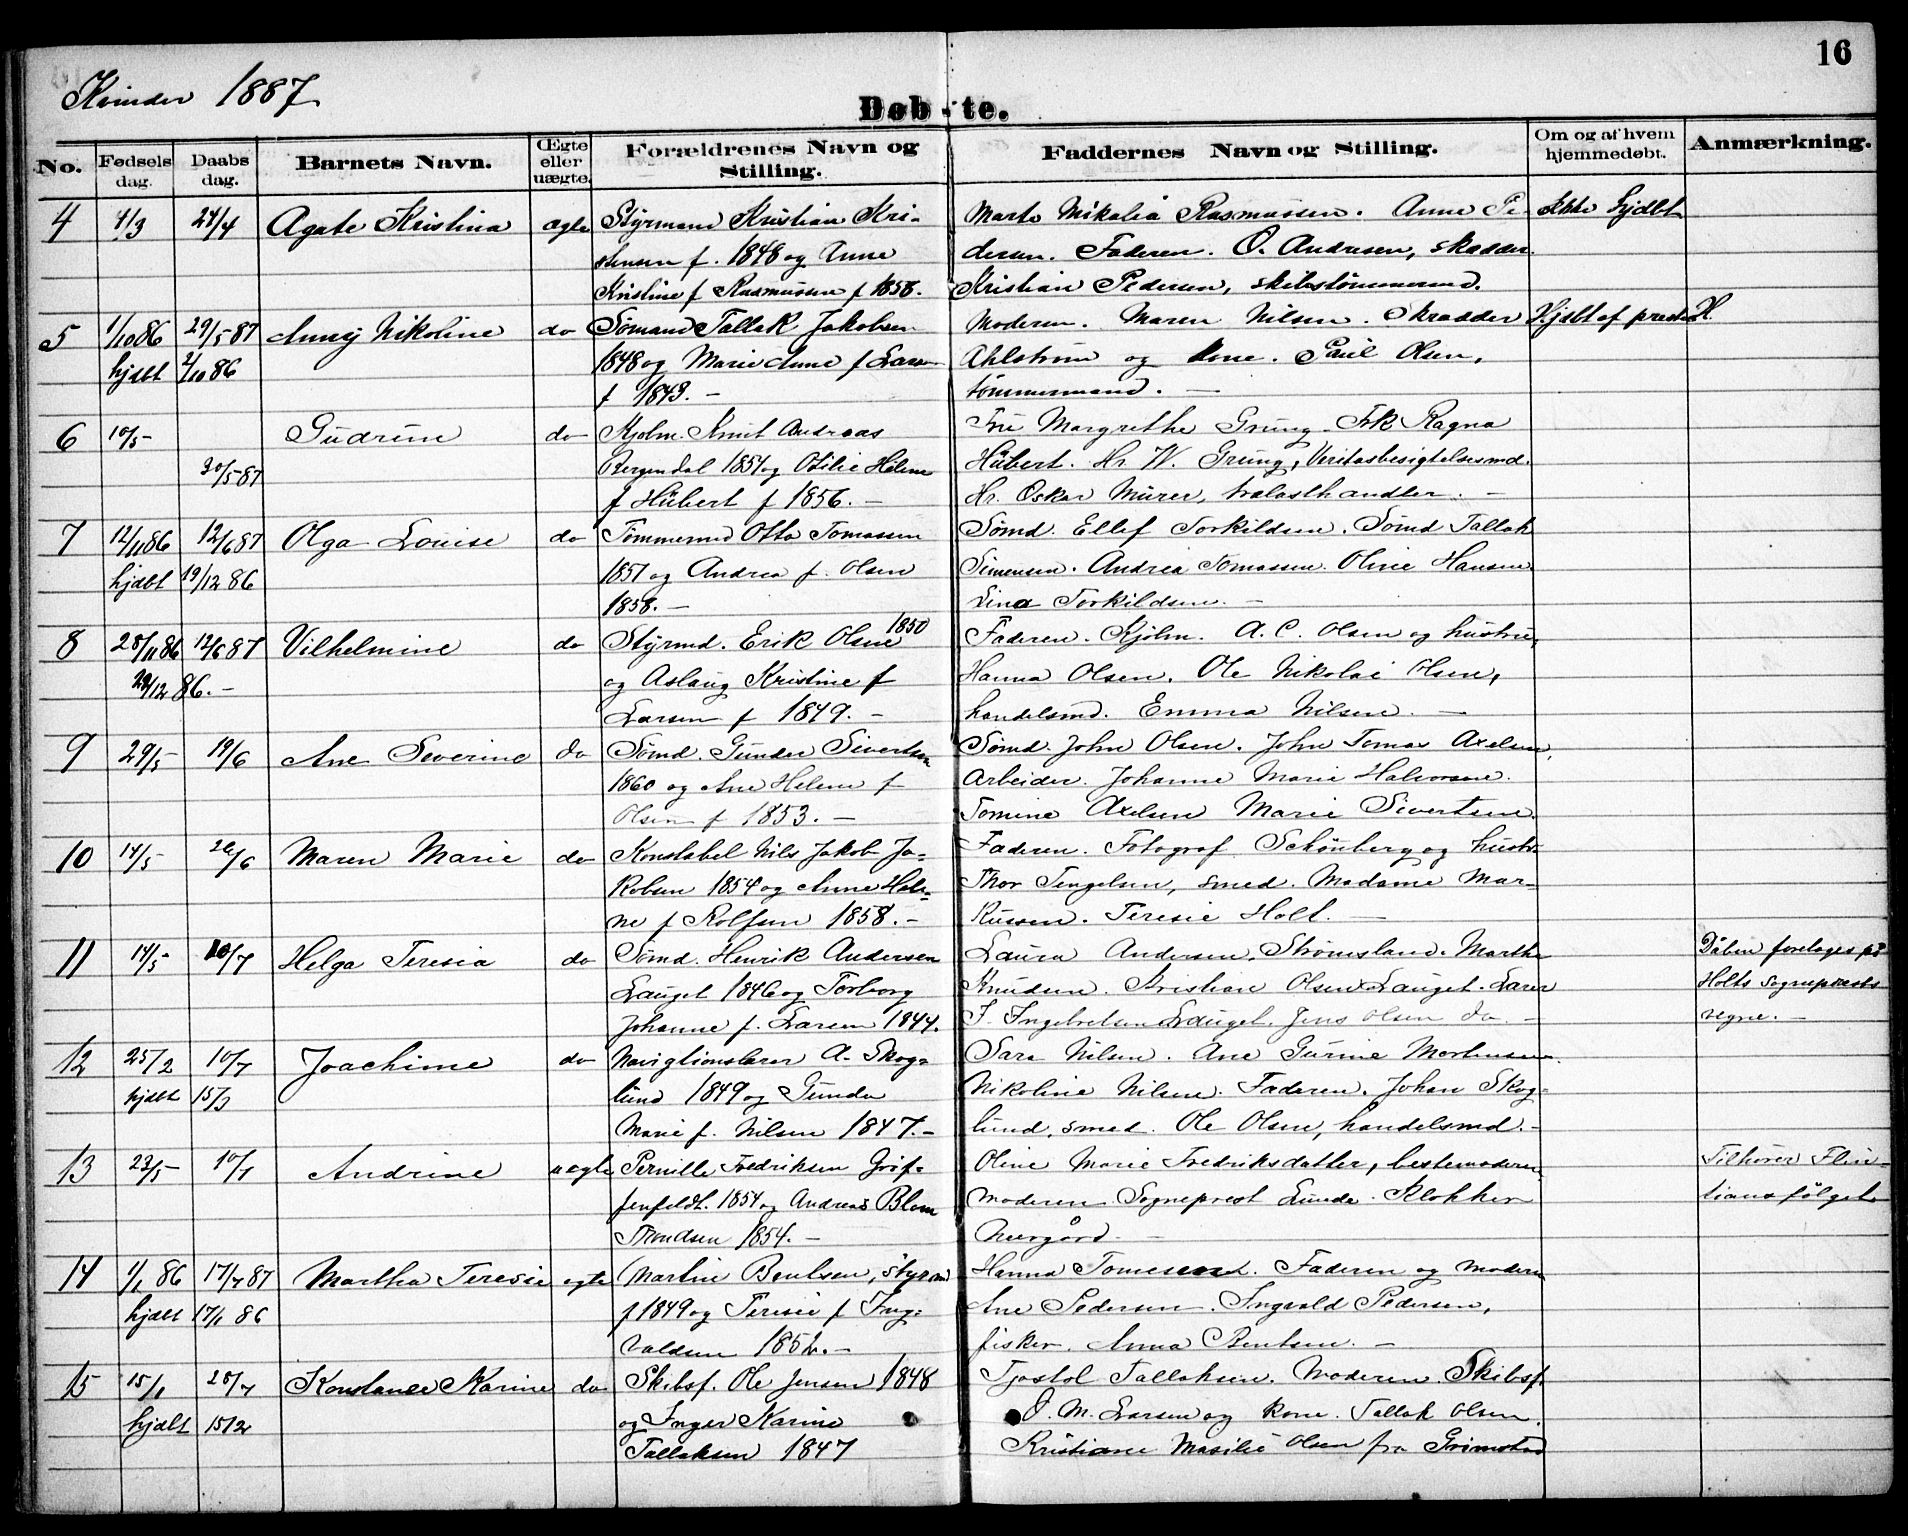 16
Kvinder 1887
Døbte.
No. Fødsels dag. Daabs dag. Barnets Navn. Ægte eller uægte. Forældrenes Navn og Stilling. Faddernes Navn og Stilling. Om og af hvem hjemmedøbt. Anmærkning.
4 4/3 24/4 Agate Kristina ægte Styrmand Kristian Kri- Marte Nikolia Rasmussen. Anne Pe- Ikke hjdbt
stensen f. 1848 og Anne dersen. Faderen. O. Andresen, skrædder.
Kristine f Rasmussen f 1858. Kristian Pedersen, skibstømmermd.
5 1/10 86 29/5 87 Anny Nikoline do Sømand Tallak Jakobsen Moderen. Maren Nilsen. Skrædder Hjdbt af presten
hjdbt 2/10 86 1848 og Marie Anne f Larsen Ahlstrøm og kone. Paul Olsen,
f 1843. - tømmermand. -
6 10/5 Gudrun do Kjøbm. Knut Andreas Fru Margrethe Grung. Frk Ragna
30/5 87 Bergendal 1851 og Otilie Helene Hübert. Hr. W. Grung, Veritasbesigtelsesmd.
f Hübert f 1856. - Hr. Oskar Murer, trælasthandler. -
7 12/11 86 12/6 87 Olga Louise do Tømmermd Otto Tomassen Sømd. Ellef Torkildsen. Sømd Tallak
hjdbt 19/12 86 1851 og Andrea f. Olsen Simensen. Andrea Tomassen. Oline Hansen
1858. - Lina Torkildsen. -
8 28/11 86 12/6 87 Vilhelmine do Styrmd. Erik Olsen 1850 Faderen. Kjøbm. A. C. Olsen og hustru,
29/12 86. - og Aslaug Kristine f Hanna Olsen. Ole Nikolai Olsen,
Larsen f 1849. - handelsmd. Emma Nilsen. -
9 29/5 19/6 Ane Severine do Sømd. Gunder Sivertsen Sømd. John Olsen. John Tomas Axelsen,
1860 og Ane Helene f Arbeider. Johanne Marie Halvorsen.
Olsen f 1853. - Tomine Axelsen Marie Sivertsen.
10 14/5 26/6 Maren Marie do Konstabel Nils Jakob Ja- Faderen. Fotograf Schönberg og hustr.
kobsen 1854 og Anne Hele- Thor Tengelsen, smed. Madame Mar-
ne f Rolfsen 1858. - kussen. Teresie Holt. -
11 14/5 10/7 Helga Teresia do Sømd. Henrik Andersen Laura Andersen, Strømsland. Marthe Dåben foretages på
Lauget 1846 og Torborg Knudsen. Kristian Olsen Lauget. Lars Holts sogneprests
Johanne f. Larsen 1844. I. Ingebretsen Lauget. Jens Olsen do. - vegne. -
12 25/2 10/7 Joachime do Navigtionslærer A. Skog- Sara Nilsen. Ane Gurine Mortensen.
hjdbt 15/3 lund 1849 og Gunda Nikoline Nilsen. Faderen. Johan Skog-
Marie f. Nilsen 1847. - lund, smed. Ole Olsen, handelsmd. -
13 23/5 10/7 Andrine uægte Pernille Fredriksen Grif- Oline Marie Fredriksdatter, bestemoderen, Tilhører Flin-
fenfeldt. 1854 og Andreas Blom Moderen Sogneprest Lunde. Klokker tians følget
Trondsen 1854. - Nergård. -
14 1/1 86 17/7 87 Martha Teresie ægte Martin Bentsen, styrmd Hanna Tomesen. Faderen og Moderen
hjdbt 17/1 86 f 1849 og Teresie f Ing- Ane Pedersen. Ingvald Pedersen,
valdsen 1852. - fisker. Anna Bentsen. -
15 15/1 28/7 Konstanse Karine do Skibsf. Ole Jensen 1848 Tjostol Tallaksen. Moderen. Skibsf.
hjdbt 15/2 og Inger Karine O. M. Larsen og kone. Tallak Olsen.
Tallaksen 1847 Kristiane Masilie Olsen fra Grimstad